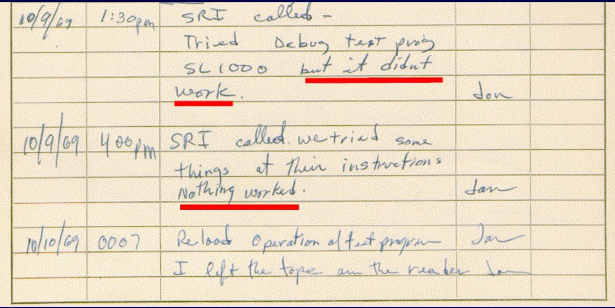 10/9/69 1:30pm SRI called -
Tried Debug test prog
SL1000 but it didnt
work. Jon
10/9/69 400pm SRI called. we tried some
things at their instructions
Nothing worked. Jon
10/10/69 0007 Reload Operation of test program Jon
I left the tape on the reader Jon